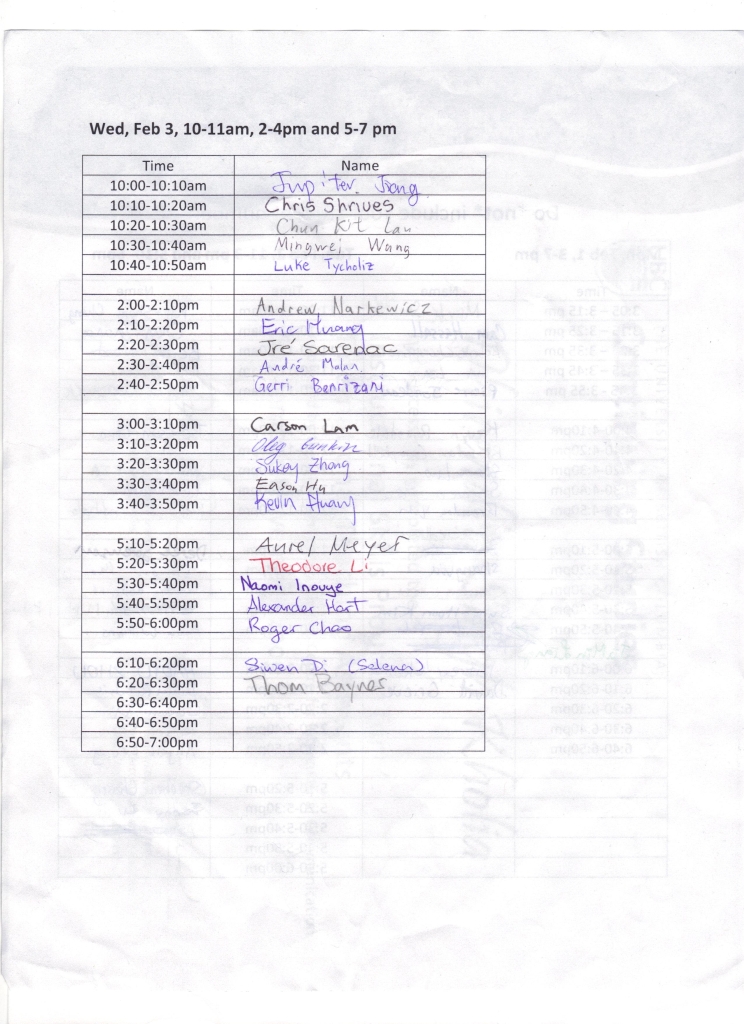 Wed, Feb 3, 10-11am, 2-4pm and 5-7 pm
Time Name
10:00-10:10am Jupiter Jiang
10:10-10:20am Chris Shriues
10:20-10:30am Chun Kit Lau
10:30-10:40am Mingwei Wang
10:40-10:50am Luke Tycholiz
2:00-2:10pm Andrew Narkewicz
2:10-2:20pm Eric Huang
2:20-2:30pm Jré Sarenac
2:30-2:40pm André Malan
2:40-2:50pm Gerri Benrizani
3:00-3:10pm Carson Lam
3:10-3:20pm Oleg
3:20-3:30pm Sukey Zhang
3:30-3:40pm Eason Hu
3:40-3:50pm Kevin Huang
5:10-5:20pm Aurel Meyer
5:20-5:30pm Theodore Li
5:30-5:40pm Naomi Inouye
5:40-5:50pm Alexander Hart
5:50-6:00pm Roger Chao
6:10-6:20pm Siwen Di (Selena)
6:20-6:30pm Thom Baynes
6:30-6:40pm
6:40-6:50pm
6:50-7:00pm